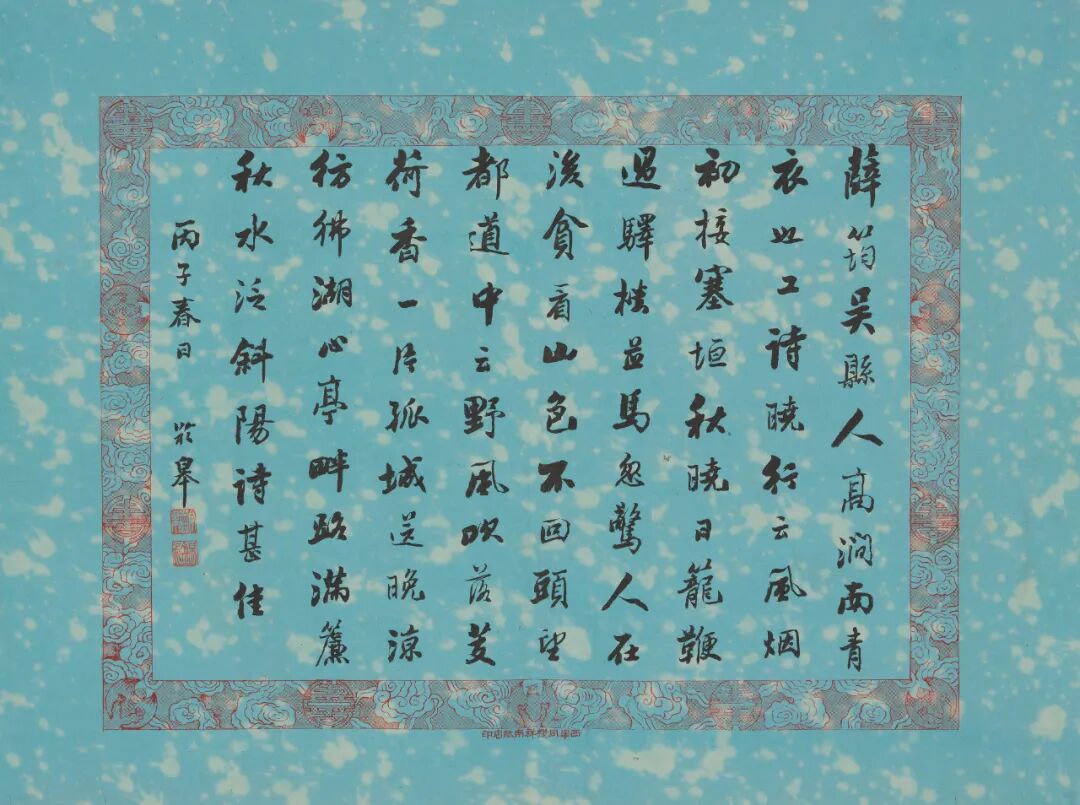 薛筠吴縣人高澗南青
衣也工诗曉行云風烟
初接塞垣秋曉日籠鞭
過驛樓並馬忽驚人在
後貪看山色不回頭望
都道中云野風吹落芰
荷香一片孤城送晚涼
彷彿湖心亭畔路滿簾
秋水泛斜陽诗甚佳
丙子春日 於皋